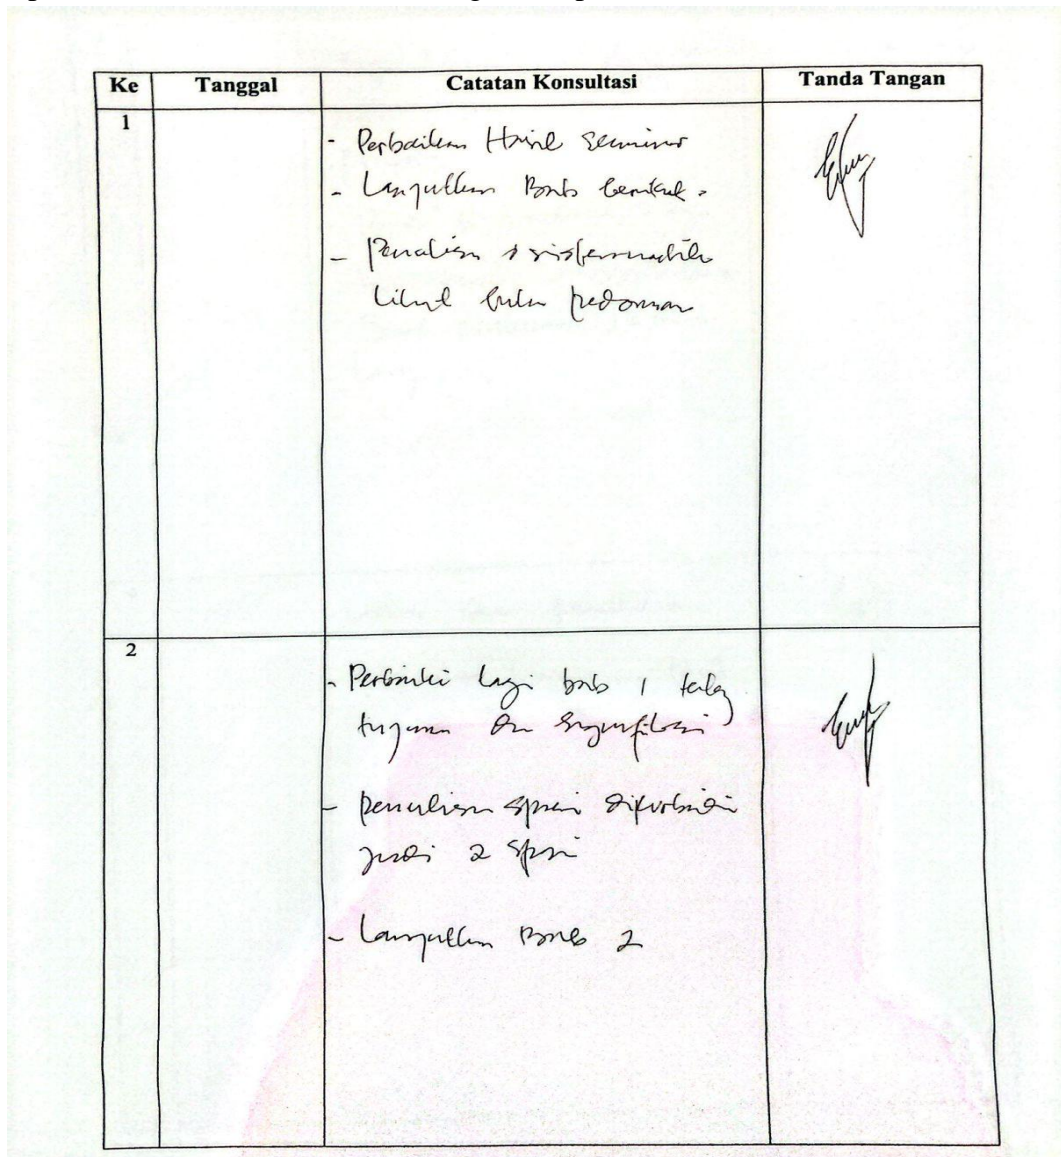 Ke Tanggal Catatan Konsultasi Tanda Tangan
1
- Perbaikan Hasil Seminar
- Lanjutkan Bab berikut.
- Penulisan & sistematika
lihat buku pedoman
2
- Perbaiki lagi bab 1
tujuan dan signifikasi
- penulisan spasi diperbaiki
jadi 2 spasi
- Lanjutkan Bab 2